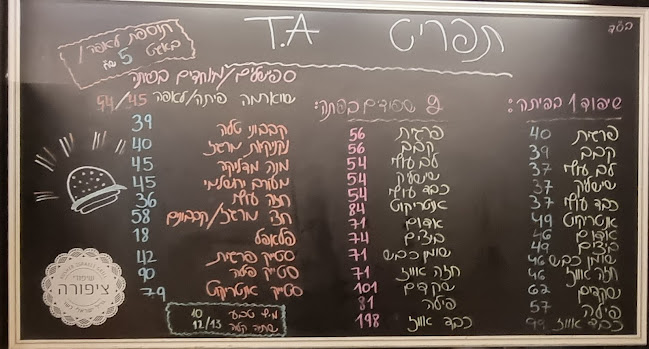 בס"ד
תפריט T.A
תוספת לאפה /
באגט 5 ₪
שיפוד 1 בפיתה:
פרגית 40
קבב 39
לב עוף 37
שישליק 37
כבד עוף 37
אנטריקוט 49
אדום 46
ביצים 49
שומן כבש 46
חזה אווז 46
שקדים 62
פילה 57
כבד אווז 99
2 שיפודים בפיתה:
פרגית 56
קבב 56
לב עוף 54
שישליק 54
כבד עוף 54
אנטריקוט 84
אדום 71
ביצים 74
שומן כבש 71
חזה אווז 71
שקדים 101
פילה 81
כבד אווז 198
ספיישלים/מיוחדים בפיתה
שווארמה פיתה/לאפה 44/45
קבבוני טלה 39
נקניקיות מרגז 40
מנה מדליקה 45
מעורב ירושלמי 45
חזה עוף 36
חצי מרגז/קבבונים 58
פלאפל 18
סטייק פרגית 42
סטייק פילה 90
סטייק אנטריקוט 79
מיץ טבעי 10
שתיה קלה 12/13
שיפודי
ציפורה